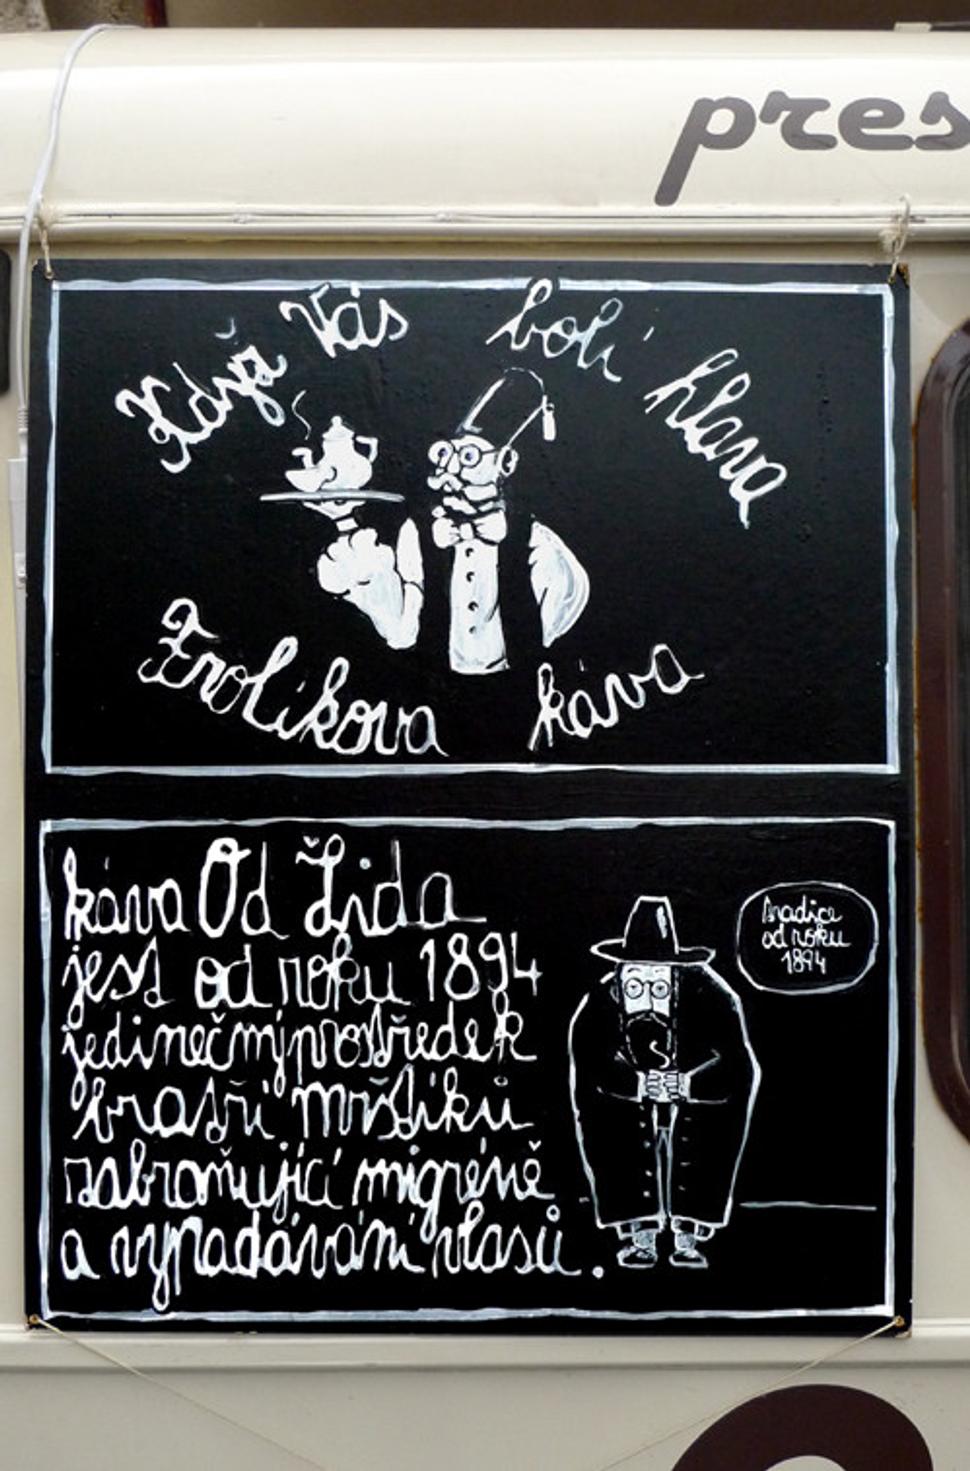 pres
Když Vás bolí hlava
Frolíkova káva
káva Od Žida
jest od roku 1894
jedinečný prostředek
bratří mrštíků
zabraňující migréně
a vypadávání vlasů.
tradice
od roku
1894